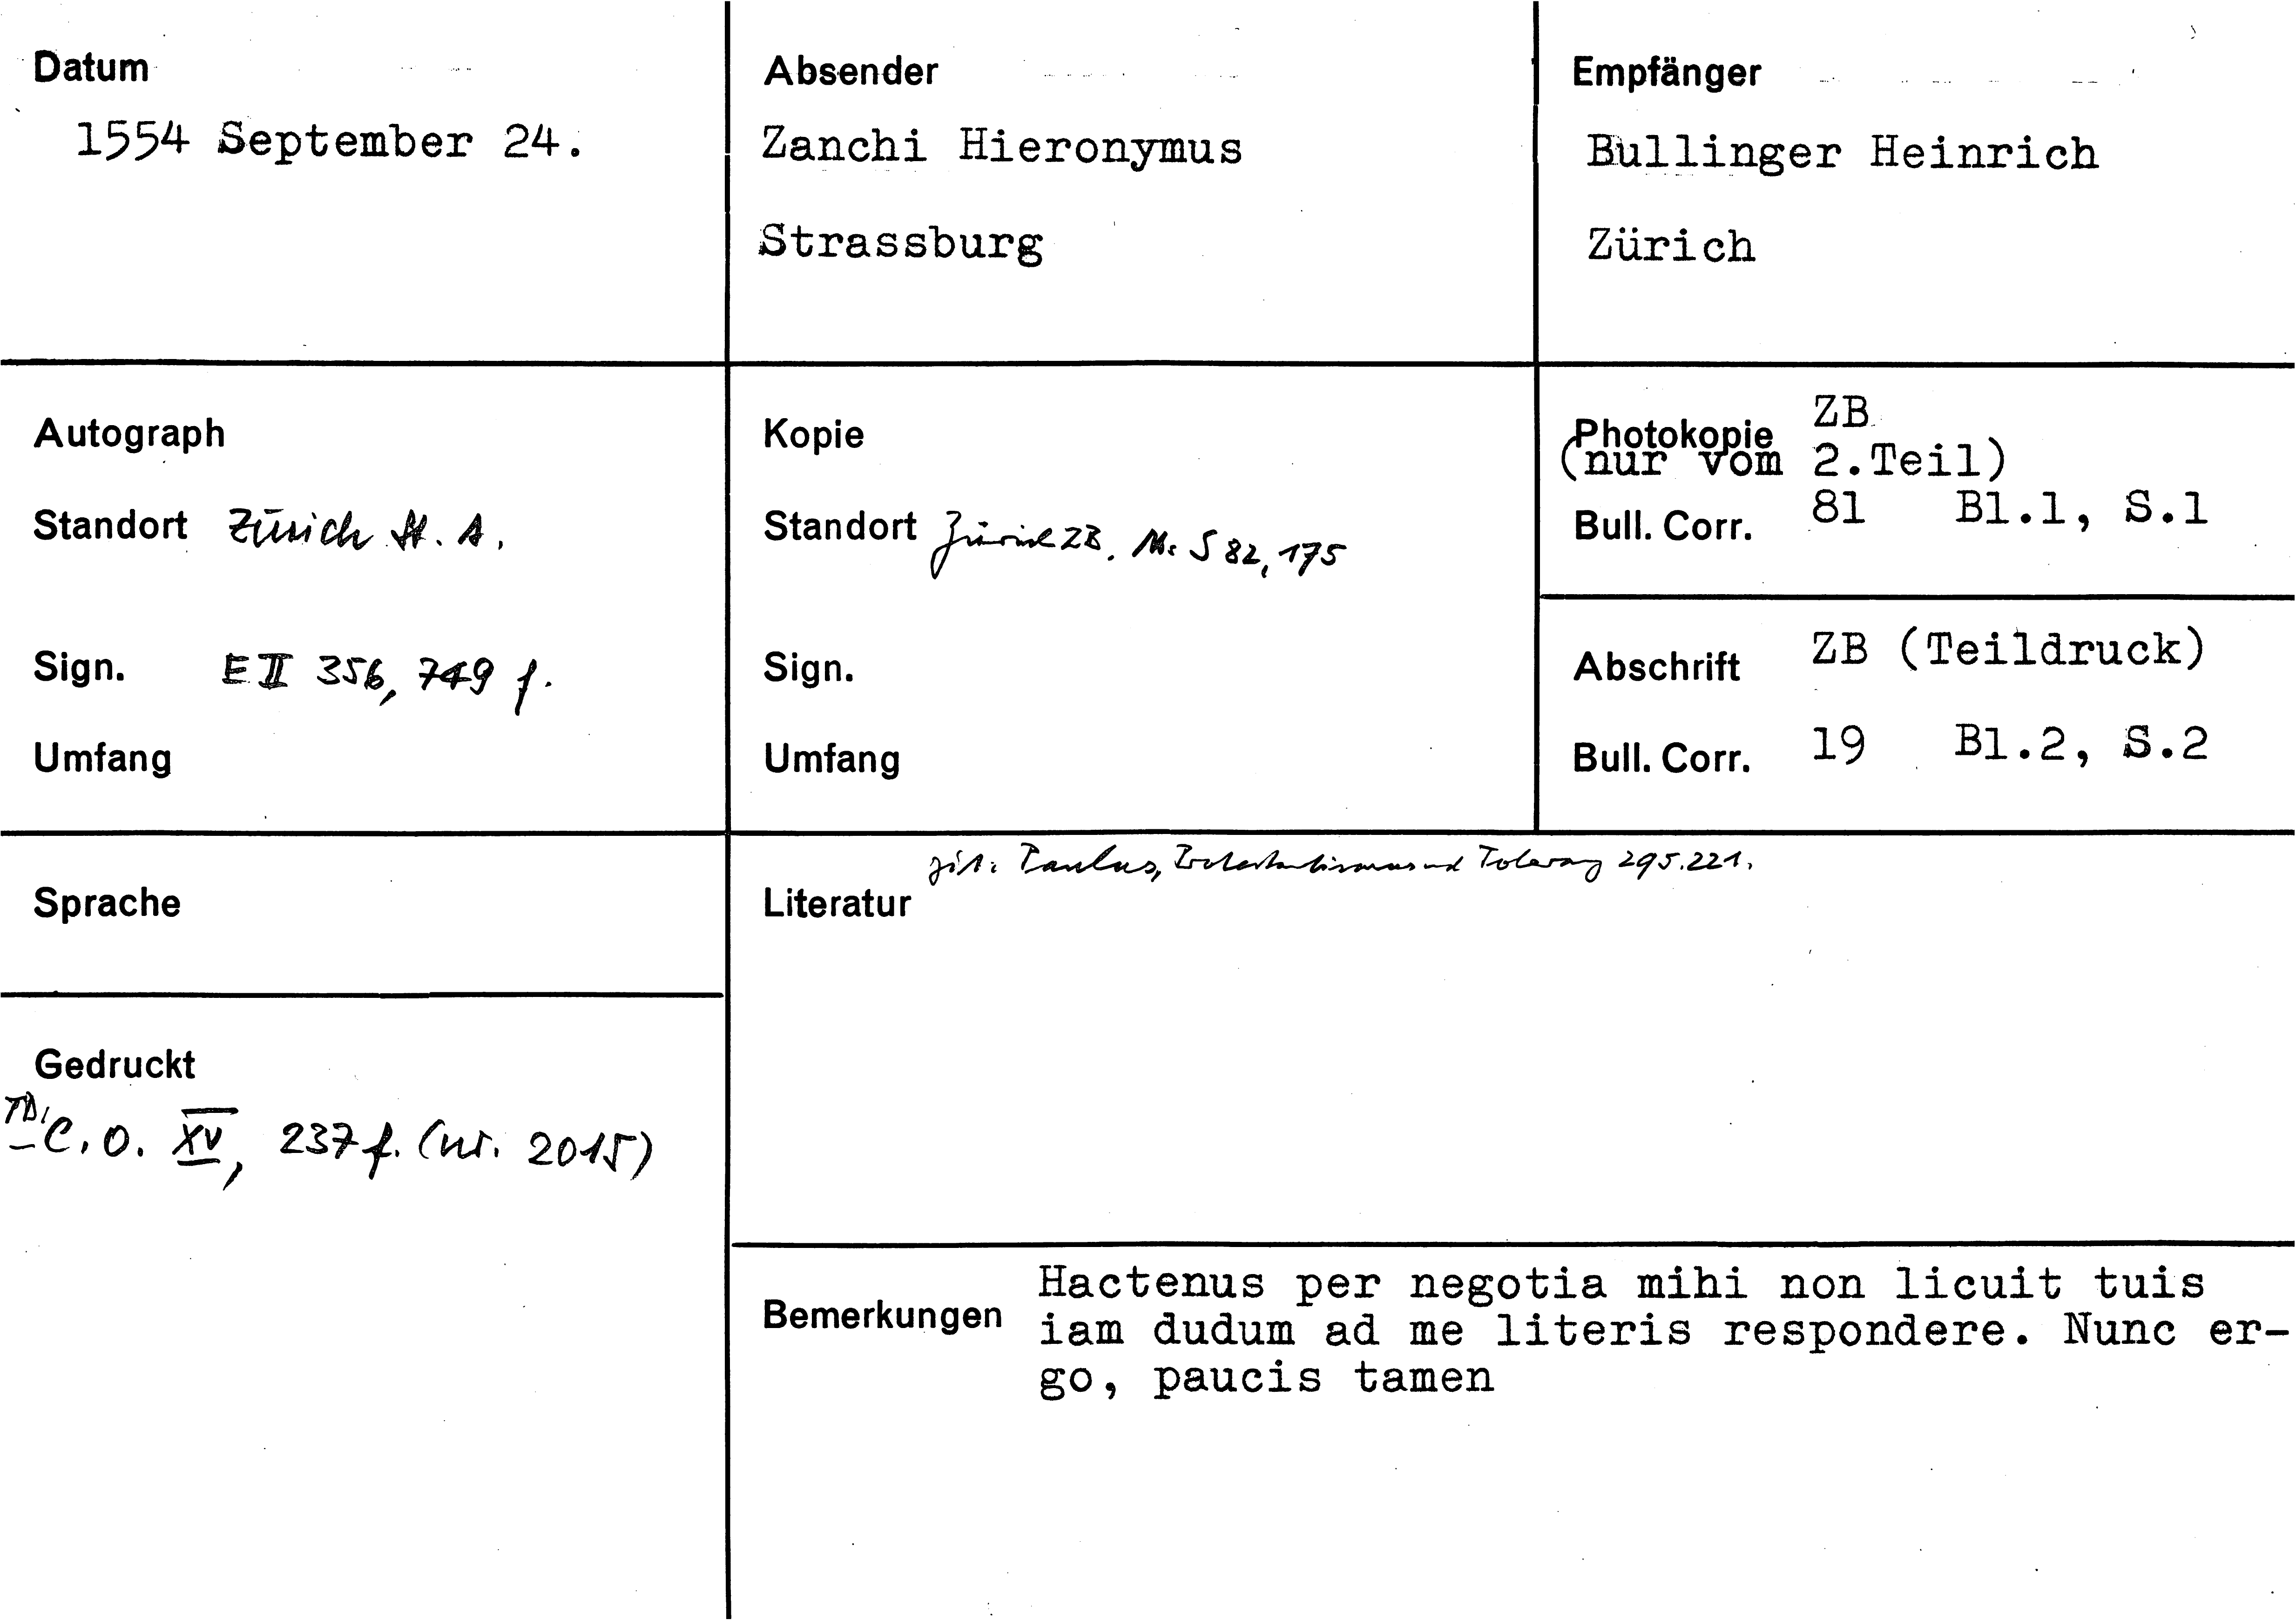 Datum
1554 September 24.
Absender
Zanchi Hieronymus
Strassburg
Empfänger
Bullinger Heinrich
Zürich
Autograph
Standort Zürich St. A.
Sign. E II 356, 749 f.
Umfang
Kopie
Standort Zürich ZB. Ms S 82, 175
Sign.
Umfang
Photokopie ZB
(nur vom 2.Teil)
Bull. Corr. 81 Bl.1, S.1
Abschrift ZB (Teildruck)
Bull. Corr. 19 Bl.2, S.2
Sprache
Gedruckt
TD: C. O. XV, 237 f. (nr. 2015)
zit: Paulus, Protestantismus und Toleranz 295.221.
Literatur
Bemerkungen
Hactenus per negotia mihi non licuit tuis
iam dudum ad me literis respondere. Nunc er-
go, paucis tamen